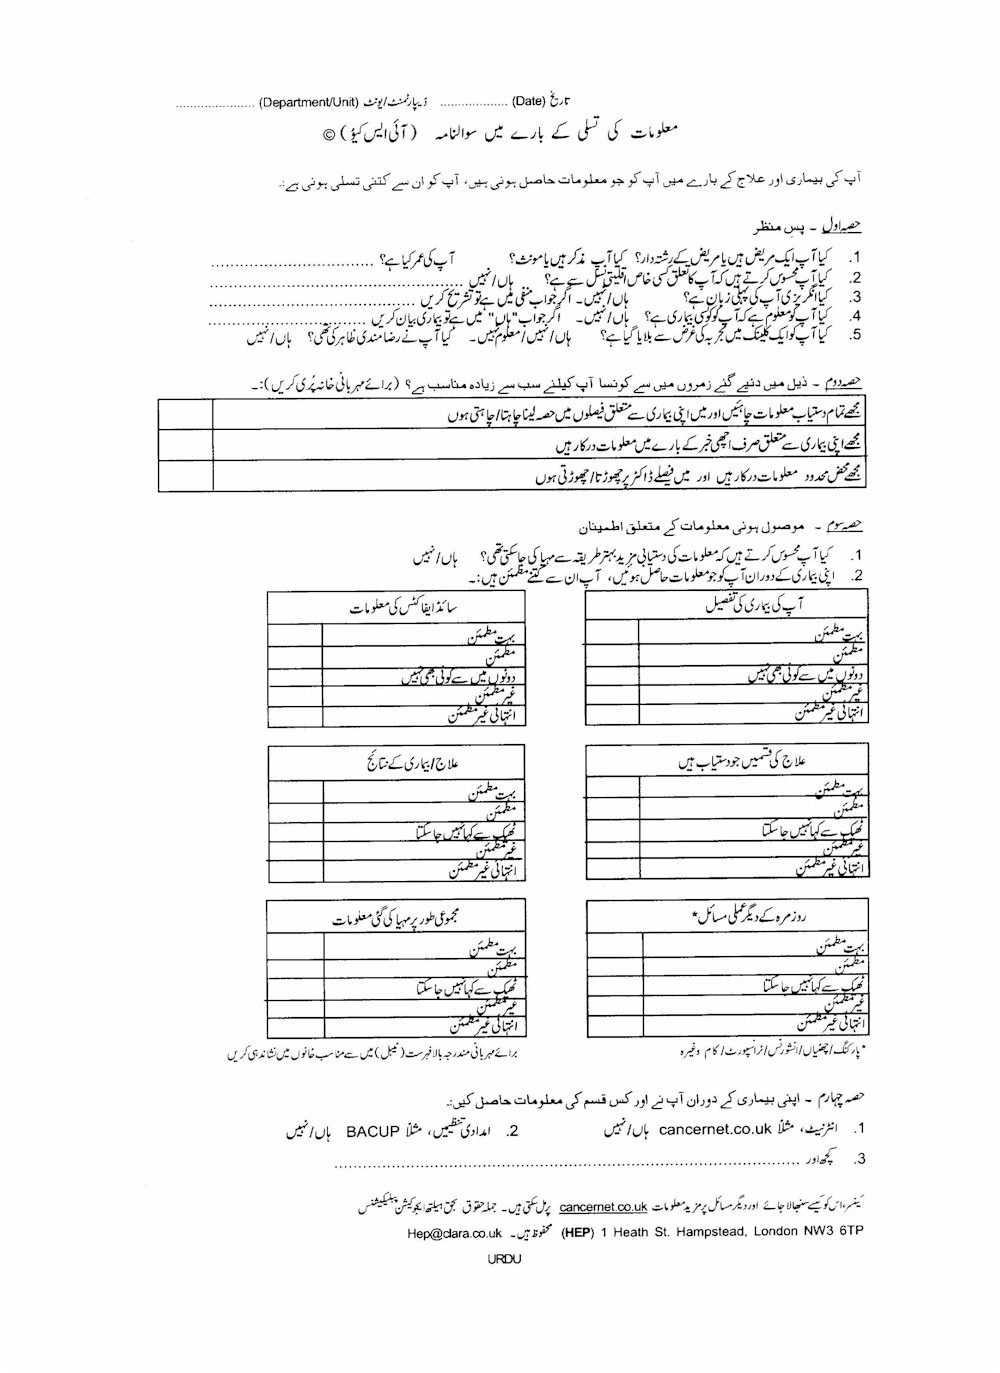 تاریخ (Date) ................... ڈیپارٹمنٹ/یونٹ (Department/Unit) ......................
معلومات کی تسلی کے بارے میں سوالنامہ (آئی ایس کیؤ) ©
آپ کی بیماری اور علاج کے بارے میں آپ کو جو معلومات حاصل ہوئی ہیں، آپ کو ان سے کتنی تسلی ہوئی ہے:۔
حصہ اول ۔ پس منظر
1. کیا آپ ایک مریض ہیں یا مریض کے رشتہ دار؟ کیا آپ مذکر ہیں یا مونث؟ آپ کی عمر کیا ہے؟ ................................
2. کیا آپ محسوس کرتے ہیں کہ آپ کا تعلق کسی خاص اقلیتی نسل سے ہے؟ ہاں/نہیں ................................
3. کیا انگریزی آپ کی پہلی زبان ہے؟ ہاں/نہیں۔ اگر جواب منفی میں ہے تو تشریح کریں ................................
4. کیا آپ کو معلوم ہے کہ آپ کو کونسی بیماری ہے؟ ہاں/نہیں۔ اگر جواب "ہاں" میں ہے تو بیماری بیان کریں ................................
5. کیا آپ کو ایک کلینک میں تجربہ کی غرض سے بلایا گیا ہے؟ ہاں/نہیں/معلوم نہیں۔ کیا آپ نے رضامندی ظاہر کی تھی؟ ہاں/نہیں
حصہ دوم ۔ ذیل میں دئیے گئے زمروں میں سے کونسا آپ کیلئے سب سے زیادہ مناسب ہے؟ (برائے مہربانی خانہ پُری کریں):۔
مجھے تمام دستیاب معلومات چاہئیں اور میں اپنی بیماری سے متعلق فیصلوں میں حصہ لینا چاہتا/چاہتی ہوں
مجھے اپنی بیماری سے متعلق صرف اچھی خبر کے بارے میں معلومات درکار ہیں
مجھے محض محدود معلومات درکار ہیں اور میں فیصلے ڈاکٹر پر چھوڑتا/چھوڑتی ہوں
حصہ سوم ۔ موصول ہوئی معلومات کے متعلق اطمینان
1. کیا آپ محسوس کرتے ہیں کہ معلومات کی دستیابی مزید بہتر طریقہ سے مہیا کی جا سکتی تھی؟ ہاں/نہیں
2. اپنی بیماری کے دوران آپ کو جو معلومات حاصل ہوئیں، آپ ان سے کتنے مطمئن ہیں:۔
آپ کی بیماری کی تفصیل
بہت مطمئن
مطمئن
دونوں میں سے کوئی بھی نہیں
غیر مطمئن
انتہائی غیر مطمئن
سائڈ ایفاکٹس کی معلومات
بہت مطمئن
مطمئن
دونوں میں سے کوئی بھی نہیں
غیر مطمئن
انتہائی غیر مطمئن
علاج کی قسمیں جو دستیاب ہیں
بہت مطمئن
مطمئن
ٹھیک سے کہا نہیں جا سکتا
غیر مطمئن
انتہائی غیر مطمئن
علاج/بیماری کے نتائج
بہت مطمئن
مطمئن
ٹھیک سے کہا نہیں جا سکتا
غیر مطمئن
انتہائی غیر مطمئن
روزمرہ کے دیگر عملی مسائل*
بہت مطمئن
مطمئن
ٹھیک سے کہا نہیں جا سکتا
غیر مطمئن
انتہائی غیر مطمئن
مجموعی طور پر مہیا کی گئی معلومات
بہت مطمئن
مطمئن
ٹھیک سے کہا نہیں جا سکتا
غیر مطمئن
انتہائی غیر مطمئن
*پارکنگ/چھٹیاں/انشورنس/ٹرانسپورٹ/کام وغیرہ
برائے مہربانی مندرجہ بالا فہرست (ٹیبل) میں سے مناسب خانوں میں نشاندہی کریں
حصہ چہارم ۔ اپنی بیماری کے دوران آپ نے اور کس قسم کی معلومات حاصل کیں:۔
1. انٹرنیٹ، مثلاً cancernet.co.uk ہاں/نہیں 2. امدادی تنظیمیں، مثلاً BACUP ہاں/نہیں
3. کچھ اور ................................................................
کینسر، اس کو کیسے سنبھالا جائے اور دیگر مسائل پر مزید معلومات cancernet.co.uk پر مل سکتی ہیں۔ جملہ حقوق بحق ہیلتھ ایجوکیشن پبلیکیشنس
(HEP) 1 Heath St. Hampstead, London NW3 6TP محفوظ ہیں۔ Hep@clara.co.uk
URDU